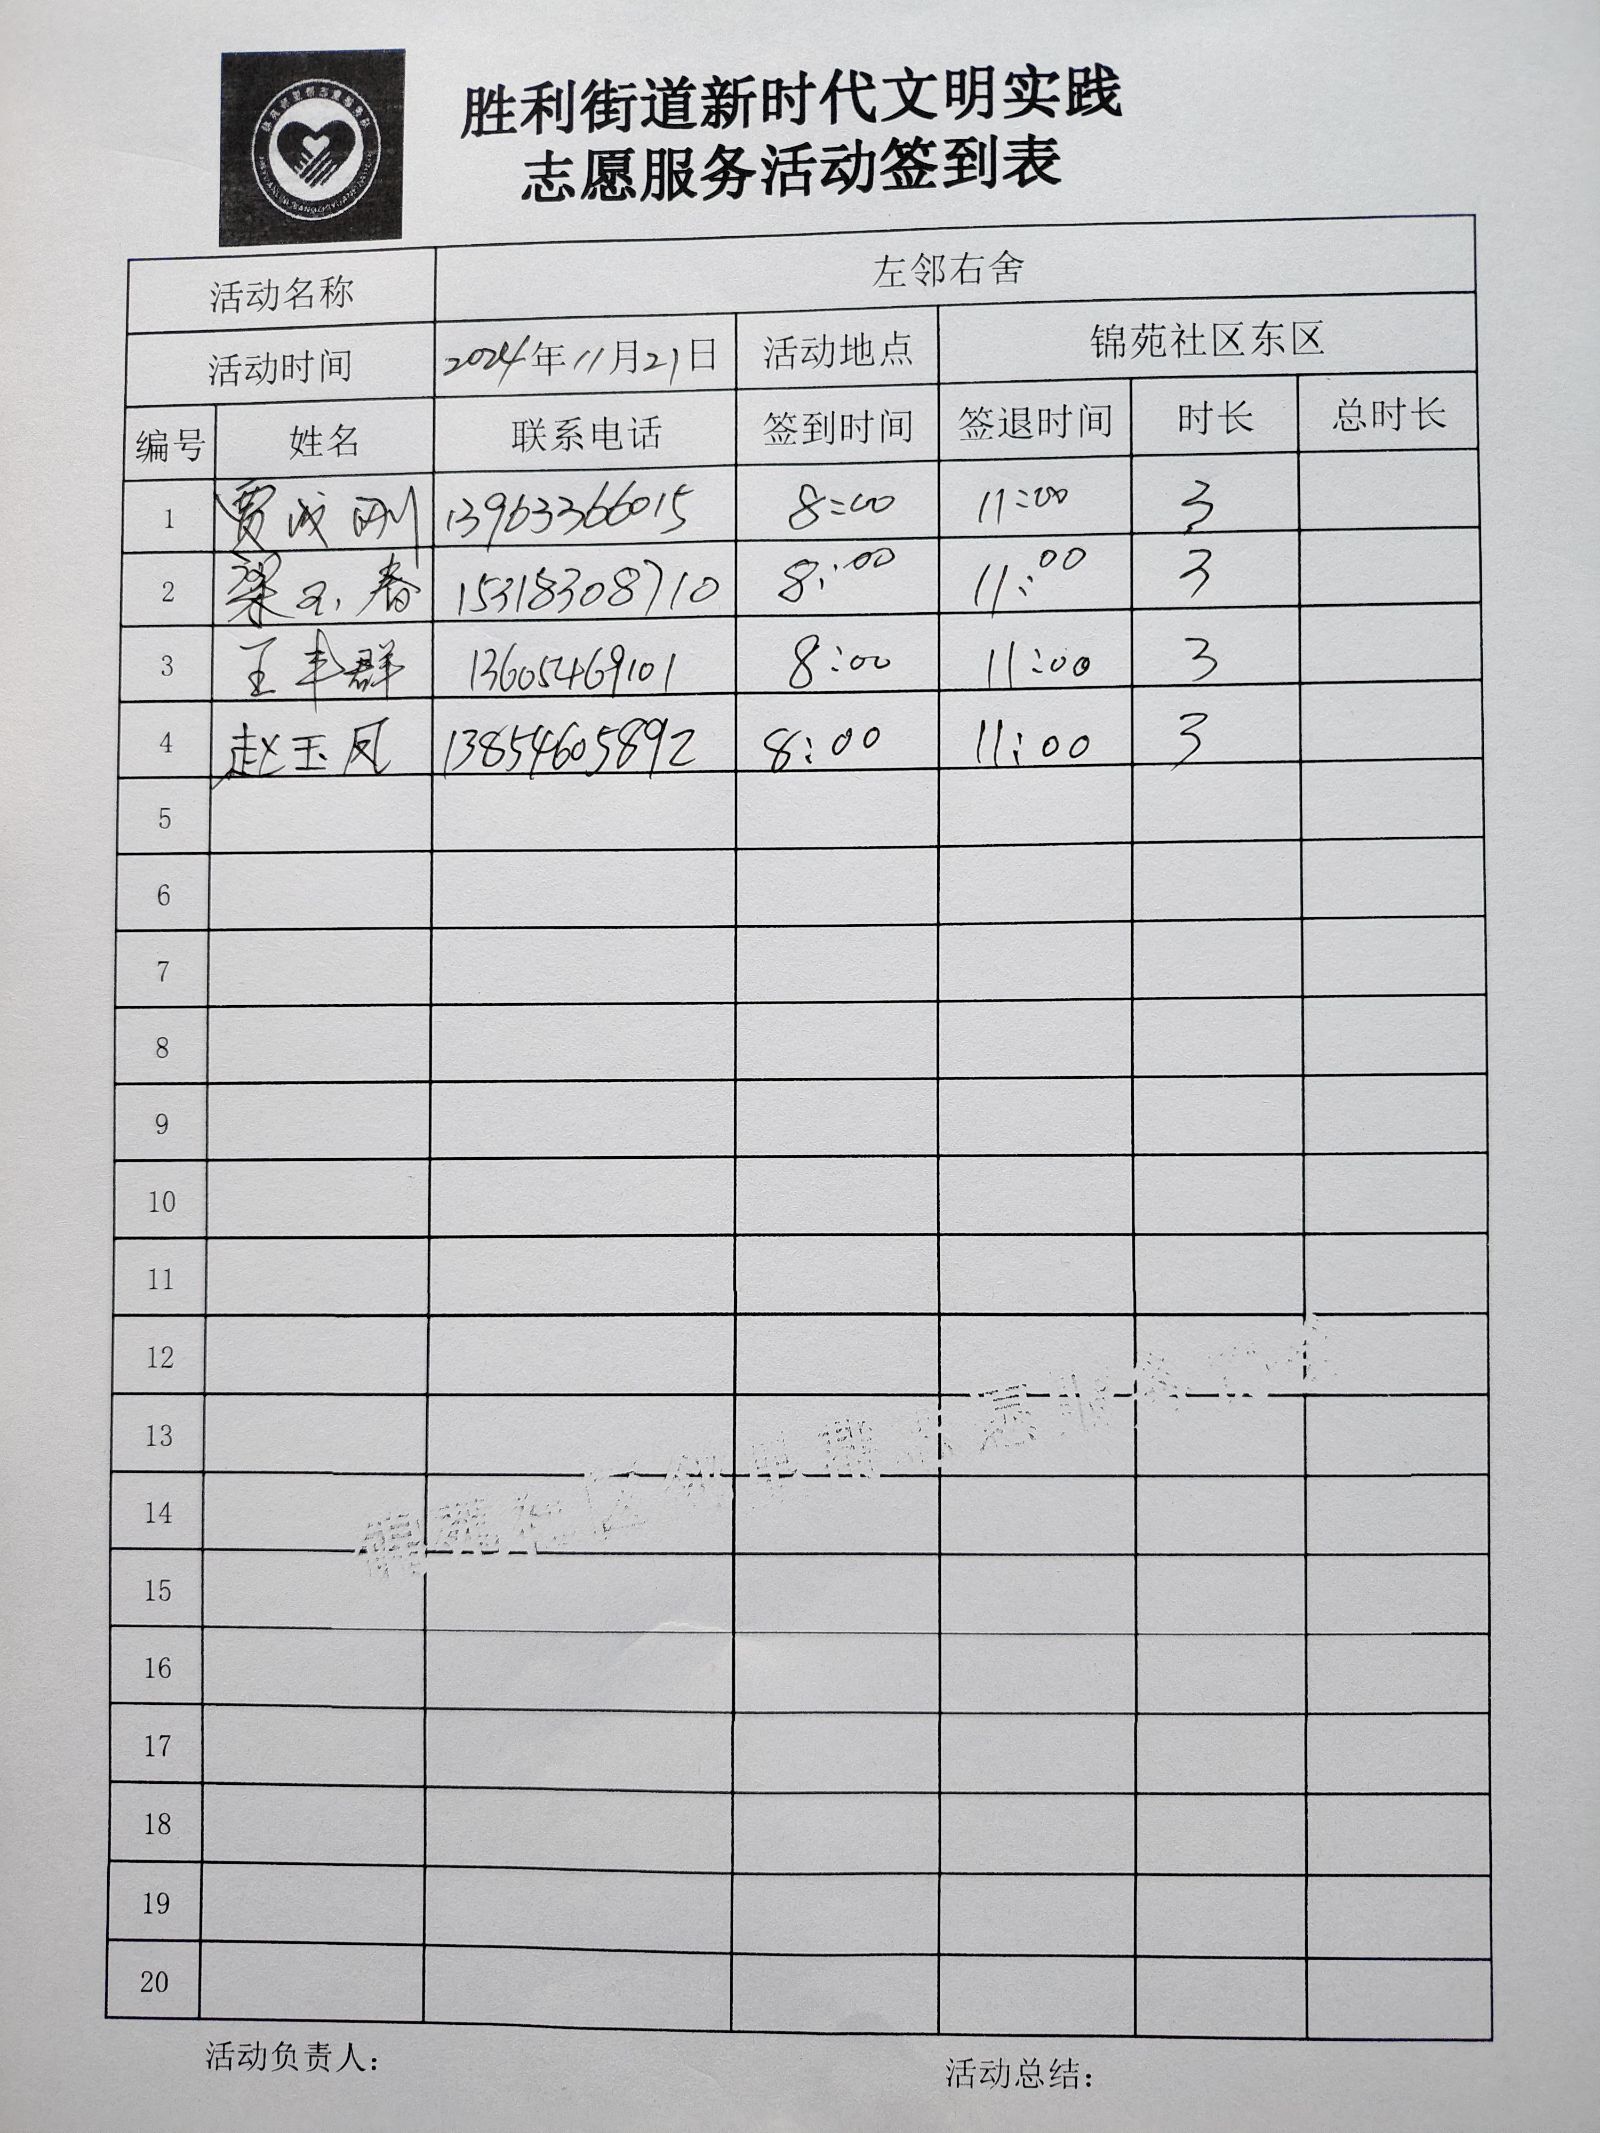 胜利街道新时代文明实践
志愿服务活动签到表
活动名称 左邻右舍
活动时间 2024年11月21日 活动地点 锦苑社区东区
编号 姓名 联系电话 签到时间 签退时间 时长 总时长
1 贾成刚 13963366015 8:00 11:00 3
2 梁玉春 15318308710 8:00 11:00 3
3 王丰群 13605469101 8:00 11:00 3
4 赵玉凤 13854605892 8:00 11:00 3
5
6
7
8
9
10
11
12
13
14
15
16
17
18
19
20
活动负责人: 活动总结: